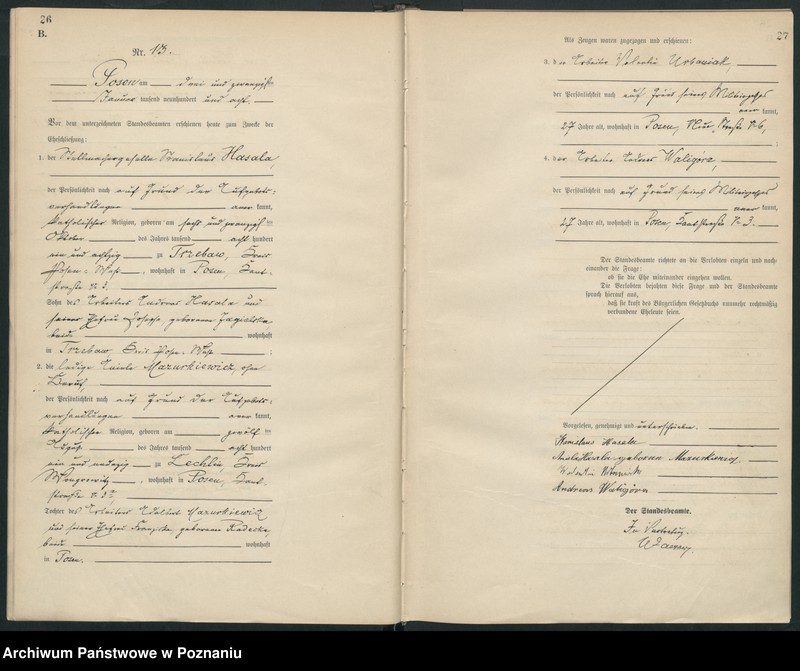 26
B.
Nr. 113.
Posen am drei und zwanzigsten
Januar tausend neunhundert und acht.
Vor dem unterzeichneten Standesbeamten erschienen heute zum Zwecke der
Eheschließung:
1. der Stellmachergeselle Stanislaus Hasala,
der Persönlichkeit nach auf Grund der Aufgebots-
verhandlungen anerkannt,
katholischer Religion, geboren am sechs und zwanzigsten
Oktober des Jahres tausend acht hundert
ein und achtzig zu Trzebaw, Kreis
Posen-West, wohnhaft in Posen,
straße N. 3.
Sohn des Arbeiters Andreas Hasala und
seiner Ehefrau Josefa geborenen Jagielska,
beide wohnhaft
in Trzebaw Kreis Posen-West;
2. die ledige Aniela Mazurkiewicz, ohne
Beruf
der Persönlichkeit nach auf Grund der Aufgebots-
verhandlungen anerkannt,
katholischer Religion, geboren am zwölften
August des Jahres tausend acht hundert
ein und neunzig zu Lechlin, Kreis
Wongrowitz, wohnhaft in Posen,
straße N. 3
Tochter des Arbeiters Mazurkiewicz
und seiner Ehefrau Franziska, geborenen
beide wohnhaft
in Posen.
27
Als Zeugen waren zugezogen und erschienen:
3. der Arbeiter Valentin Urbaniak,
der Persönlichkeit nach auf Grund seines Militärpasses
anerkannt,
27 Jahre alt, wohnhaft in Posen, Straße N. 6,
;
4. der Arbeiter Andreas Waligóra,
der Persönlichkeit nach auf Grund seines Militärpasses
anerkannt,
27 Jahre alt, wohnhaft in Posen, straße N. 3.
Der Standesbeamte richtete an die Verlobten einzeln und nach-
einander die Frage:
ob sie die Ehe miteinander eingehen wollen.
Die Verlobten bejahten diese Frage und der Standesbeamte
sprach hierauf aus,
daß sie kraft des Bürgerlichen Gesetzbuchs nunmehr rechtmäßig
verbundene Eheleute seien.
Vorgelesen, genehmigt und unterschrieben.
Stanislaus Hasala
Aniela Hasala geborene Mazurkiewicz
Valentin Urbaniak
Andreas Waligóra
Der Standesbeamte.
In Vertretung.
Archiwum Państwowe w Poznaniu